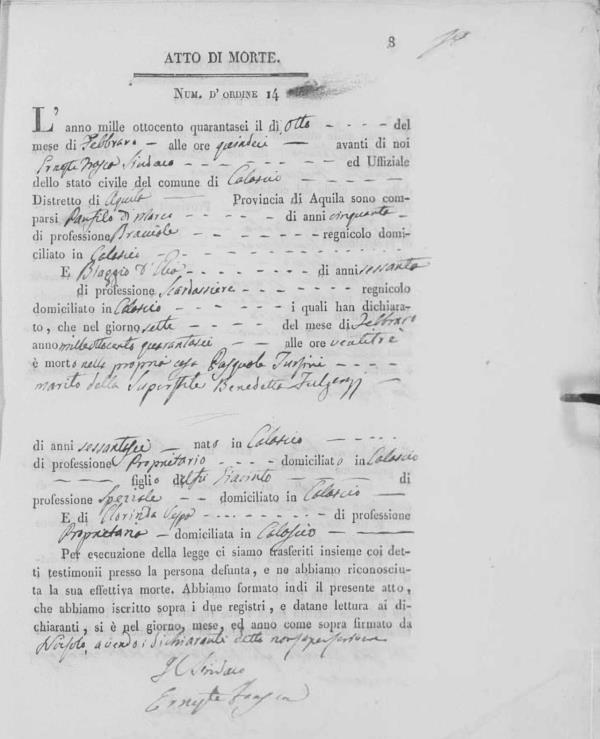 8
ATTO DI MORTE.
NUM. D' ORDINE 14
L' anno mille ottocento quarantasei il dì otto - - - - del
mese di Febbraro - alle ore quindeci — avanti di noi
Sindaco - - - - - - - ed Uffiziale
dello stato civile del comune di Calascio - - - - -
Distretto di Aquila — Provincia di Aquila sono com-
parsi Panfilo di Marco - - - - - di anni cinquanta -
di professione - - - - - - - - regnicolo domi-
ciliato in Calascio - - - - - - - - - -
E Biaggio d'Elia - - - - - - - di anni sessanta
di professione Scardassiere - - - - - - regnicolo
domiciliato in Calascio - - - - - - i quali han dichiara-
to, che nel giorno sette - - - - - del mese di Febbraro
anno milleottocento quarantasei — alle ore ventitrè
è morto nella propria casa Pasquale - - - -
marito della Superstite Benedetta —
di anni — nato in Calascio - - - -
di professione Proprietario - - - - domiciliato in Calascio
— — figlio del fu Giacinto — — di
professione Speziale - - domiciliato in Calascio —
E di Clorinda - - - - - - - di professione
Proprietaria - domiciliata in Calascio - - —
Per esecuzione della legge ci siamo trasferiti insieme coi det-
ti testimonii presso la persona defunta, e ne abbiamo riconosciu-
ta la sua effettiva morte. Abbiamo formato indi il presente atto,
che abbiamo iscritto sopra i due registri, e datane lettura ai di-
chiaranti, si è nel giorno, mese, ed anno come sopra firmato da
Noi solo, avendo i dichiaranti detto non saper scrivere
Il Sindaco